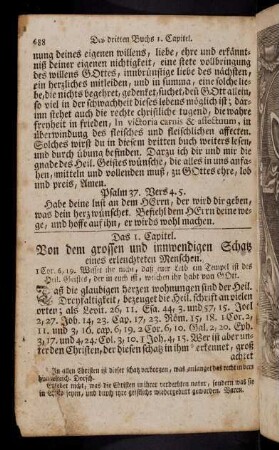 688 Des dritten Buchs 1. Capitel.
nung deines eigenen willens, liebe, ehre und erkännt-
niß deiner eigenen nichtigkeit, eine stete vollbringung
des willens GOttes, innbrünstige liebe des nächsten,
ein hertzliches mitleiden, und in summa, eine solche lie-
be, die nichts begehret, gedencket, suchet, deñ GOtt allein,
so viel in der schwachheit dieses lebens möglich ist; dar-
inn stehet auch die rechte christliche tugend, die wahre
freyheit und frieden, in victoria carnis & affectuum, in
überwindung des fleisches und fleischlichen affecten.
Solches wirst du in diesem dritten buch weiters lesen,
und durch übung befinden. Darzu ich dir und mir die
gnade des Heil. Geistes wünsche, die alles in uns anfa-
hen, mitteln und vollenden muß, zu GOttes ehre, lob
und preis, Amen.
Psalm 37. Vers 4. 5.
Habe deine lust an dem HErrn, der wird dir geben,
was dein hertz wünschet. Befiehl dem HErrn deine we-
ge, und hoffe auf ihn, er wirds wohl machen.
Das 1. Capitel.
Von dem grossen und innwendigen Schatz
eines erleuchteten Menschen.
1 Cor. 6, 19. Wisset ihr nicht, daß eure Leib ein Tempel ist des
Heil. Geistes, der in euch ist, welchen ihr habt von GOtt.
Daß die glaubigen herzen wohnungen sind der Heil.
Dreyfaltigkeit, bezeuget die Heil. schrift an vielen
orten; als Levit. 26, 11. Esa. 44, 3. und 57, 15. Joel
2, 27. Joh. 14, 23. Cap. 17, 23. Röm. 15, 18. 1 Cor. 2,
11. und 3, 16. cap. 6, 19. 2 Cor. 6, 10. Gal. 2, 20. Eph.
3, 17. und 4, 24. Col. 3, 10. 1 Joh. 4, 15. Wer ist aber un-
ter den Christen, der diesen schatz in ihm erkennet, groß
achtet
In allen Christen ist dieser schatz verborgen, was anlanget das recht